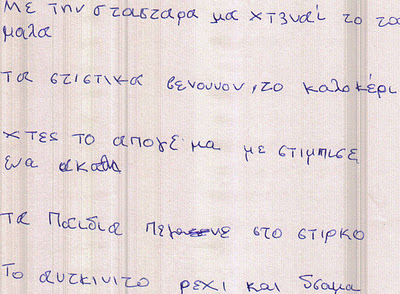 με την σταστάρα μα χτεναί το το
μαλα
τα στιστικά βενουνον, το καλοκέρι
χτες το απογέ μα με στιμπισε
ενα ακαθι
τα παιδια πεγανε στο στιρκο
το αυτκινιτο ρεχι και δσαμα